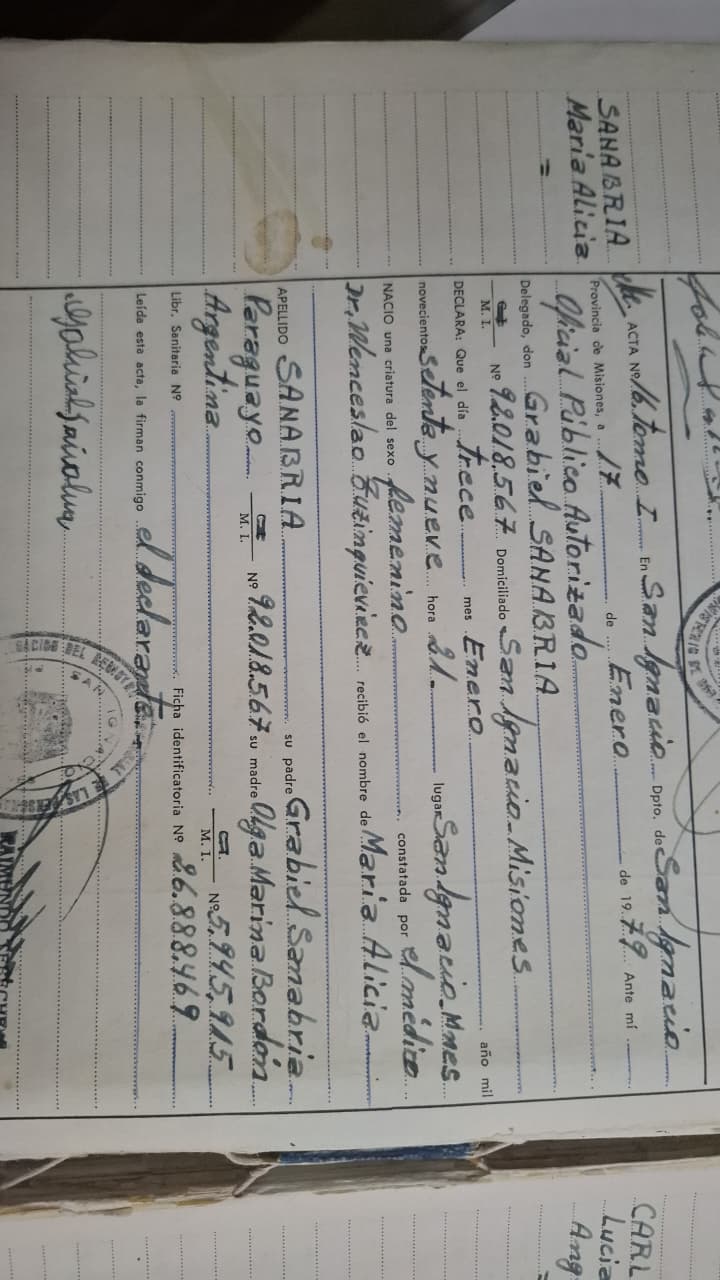 SANABRIA
Maria Alicia
=
ACTA Nº 16 tomo I En San Ignacio Dpto. de San Ignacio
Provincia de Misiones, a 17 de Enero de 1979 Ante mí
Oficial Público Autorizado
Delegado, don Grabiel SANABRIA
M. I. Nº 92.018.567 Domiciliado San Ignacio - Misiones
DECLARA: Que el día trece mes Enero año mil
novecientos setenta y nueve hora 21.- lugar San Ignacio - Mnes
NACIO una criatura del sexo femenino constatada por el médico
Dr. Wenceslao recibió el nombre de Maria Alicia
APELLIDO SANABRIA su padre Grabiel Sanabria
Paraguayo M. I. Nº 92.018.567 su madre Olga Marina Bordón
Argentina M. I. Nº 5.945.915
Libr. Sanitaria Nº Ficha identificatoria Nº 26.888.469
Leída esta acta, la firman conmigo el declarante.-
SAN IGNACIO
CARL
Lucia
Ang
=